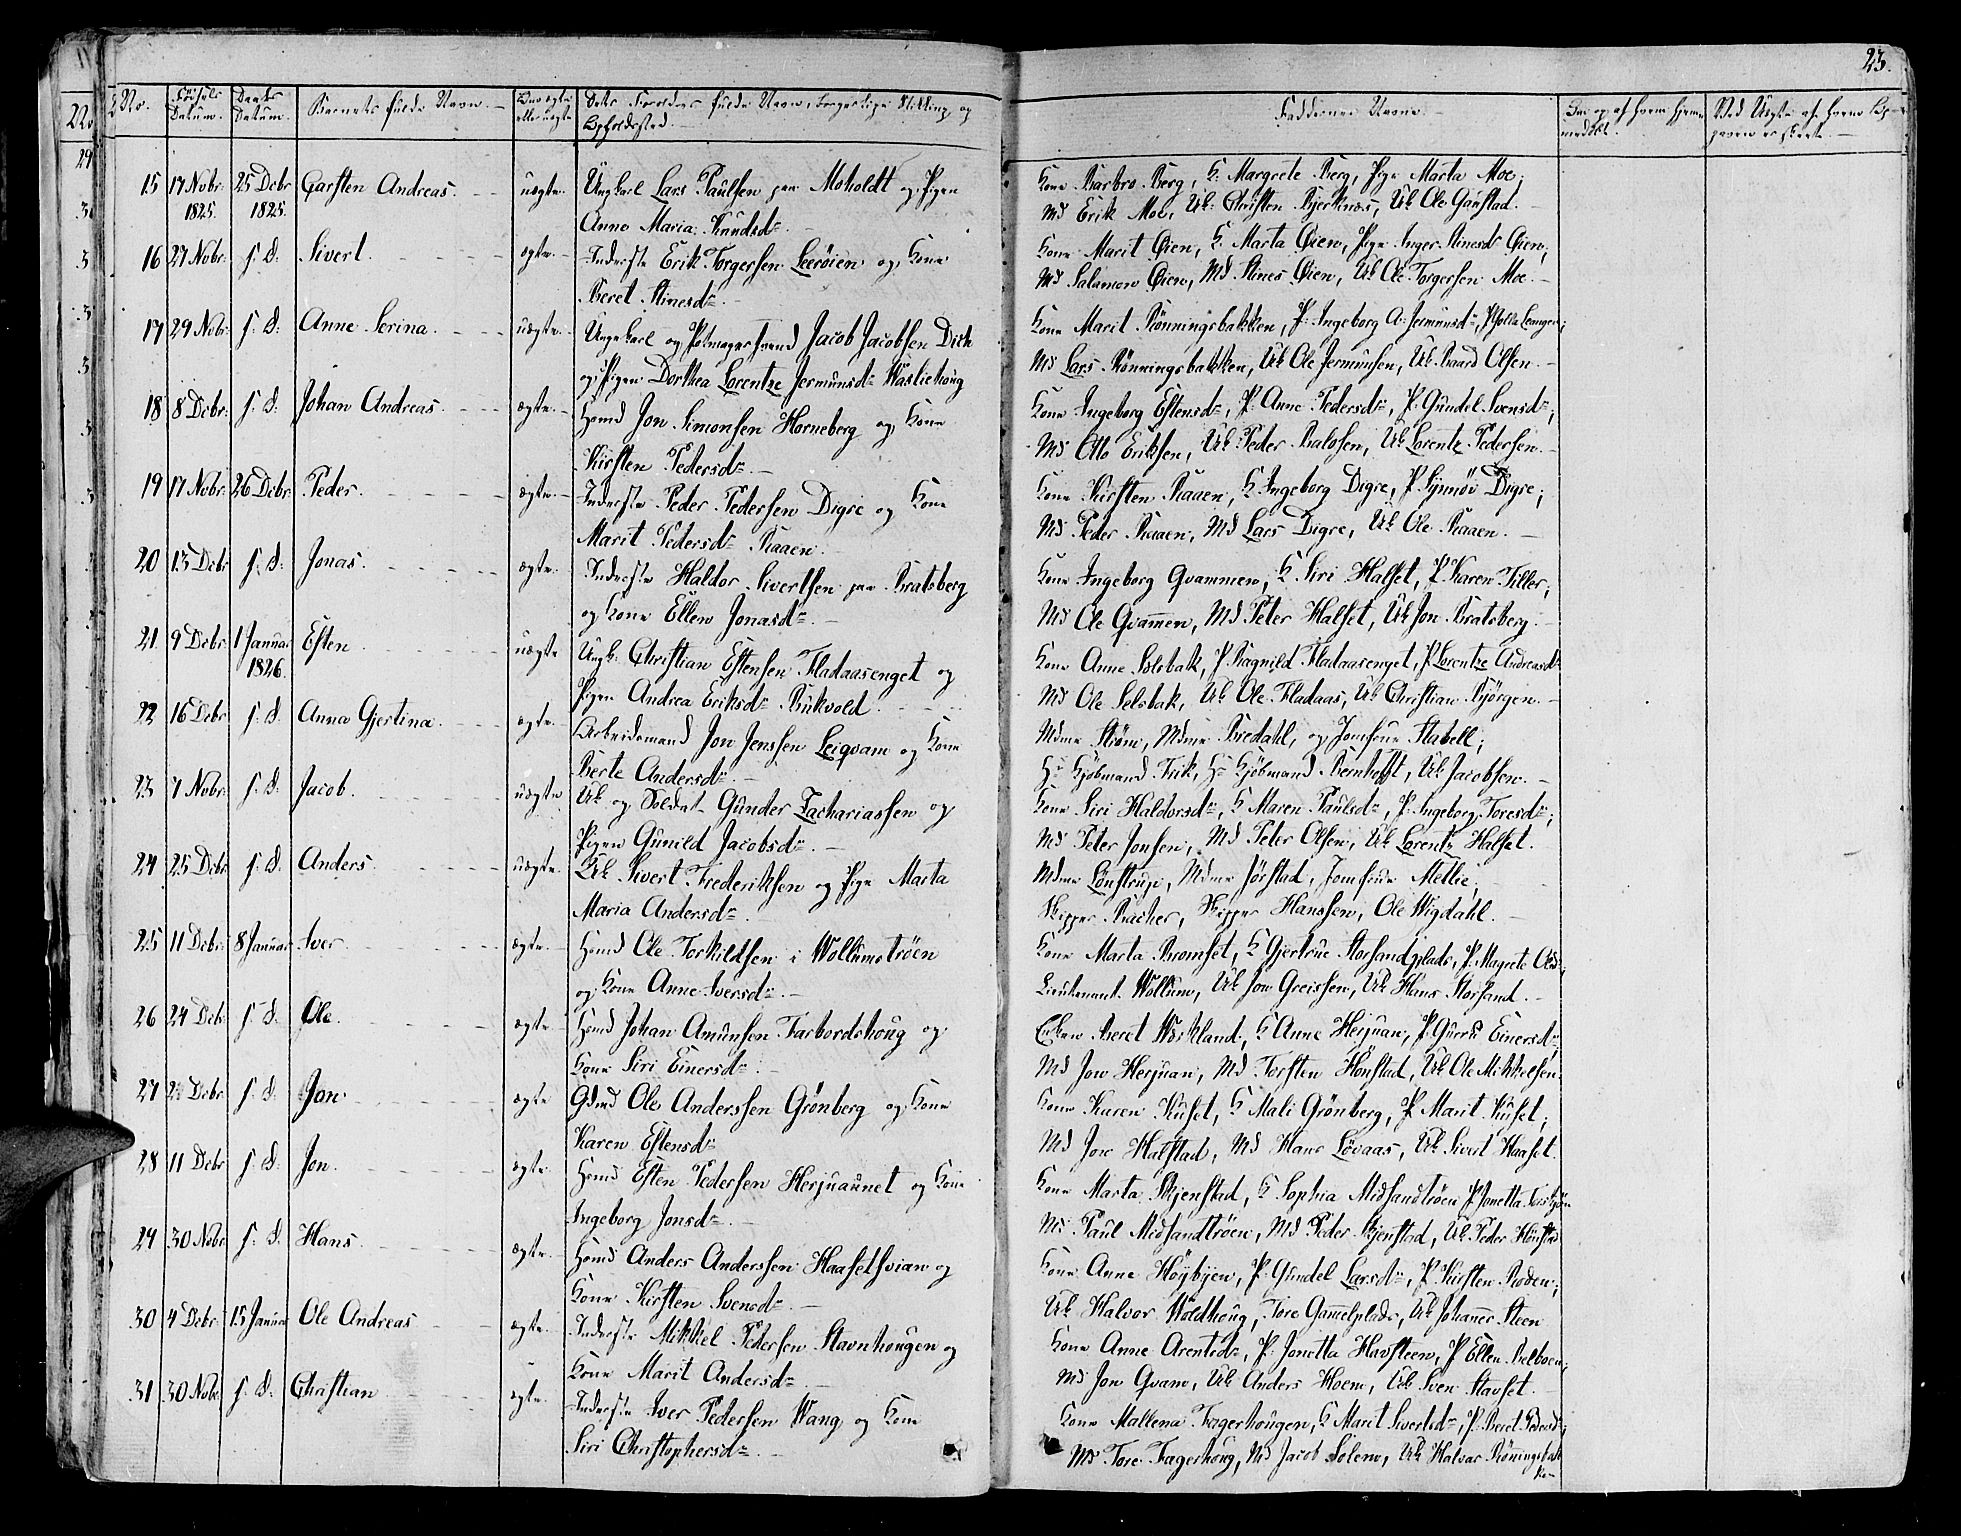 23.
No.
Fødsels Datum.
Daabs Datum.
Barnets fulde Navn.
Om ægte eller uægte
Dets Forældres fulde Navn, borgerlige Stilling og Opholdssted.
Faddernes Navne.
15 17 Novbr 1825. 25 Debr 1825. Carsten Andreas. uægte. Ungkarl Lars Paulsen paa Moholdt og Pigen
Anne Maria Knudsdr.
Kone Barbro Berg, K. Margrete Berg, Pige Marta Moe;
Md Erik Moe, Uk. Christen Bjerknæs, Uk Ole Gaustad.
16 27 Novbr. s. D. Sivert. ægte. Inderste Erik Torgersen Leerøien og Kone
Beret Stinesdr.
Kone Marit Øien, K. Marta Øien, Pige Inger Stinesdr Øien,
Md Salamon Øien, Md Stines Øien, Uk Ole Torgersen Moe.
17 29 Novbr. s. D. Anne Serina. uægte. Ungekarl og Potmagersvend Jacob Jacobsen Dick
og Pigen Dorthea Lorentze Jermunsdr
Kone Marit Rønningsbakken, P. Ingeborg A. Jermunsdr,
Md Lars Rønningsbakken, Uk Ole Jermunsen, Uk Baard Olsen.
18 8 Debr: s. D. Johan Andreas. ægte. Hmd Jon Simonsen Horneberg og Kone
Kirsten Pedersdr.
Kone Ingeborg Estensdr, P. Anne Pedersdr, P. Gundel Svensdr;
Md Otto Eriksen, Uk Peder Balosen, Uk Lorentz Pedersen.
19 17 Novbr. 26 Debr. Peder. ægte. Inderste Peder Pedersen Digre og Kone
Marit Pedersdr Raaen.
Kone Kirsten Raaen, K. Ingeborg Digre, P. Synnøv Digre;
Md Peder Raaen, Md Lars Digre, Uk Ole Raaen.
20 13 Debr s. D. Jonas. ægte. Inderste Haldor Sivertsen paa Bratsberg
og Kone Ellen Jonasdr.
Kone Ingeborg Qvammen, K. Siri Halset, P. Karen Tiller;
Md Ole Qvammen, Md Peter Halset, Uk Jon Bratsberg.
21. 9 Debr. 1 Januar 1826. Esten uægte Ungk. Christian Estensen Fladaasenget og
Pigen Andrea Eriksdr Bukvold.
Kone Anne Selsbak, P. Ragnild Fladaasenget, P. Lorentze Andreasdr
Md Ole Selsbak, Uk Ole Fladaas, Uk Christian Bjørgen.
22 16 Debr s. D. Anna Gjertina. ægte. Arbeidsmand Jon Jenssen Leiqvam og Kone
Berte Andersdr.
Mdme Strøm, Mdme Bredahl, og Jomfrue Stabell;
Hr Kjøbmand Frik, Hr Kjøbmand Bernhoft, Uk Jacobsen.
23 7 Novbr. s. D. Jacob. uægte Uk og Soldat Gunder Zachariassen og
Pigen Gunild Jacobsdr.
Kone Siri Haldorsdr, K Maren Paulsdr, P. Ingeborg Toresdr;
Md Peter Jonsen, Md Peter Olsen, Uk Lorentz Halset.
24 25 Debr s. D. Anders. uægte. Uk Sivert Frederiksen og Pige Marta
Maria Andersdr.
Mdme Lønstrup, Mdme Jørstad, Jomfrue Mellie,
Skipper Bacher, Skipper Hanssen, Ole Wigdahl.
25 11 Debr. 8 Januar Iver. ægte. Hmd Ole Torkildsen i Wollumstrøen
og Kone Anne Iversdr.
Kone Marta Bromset, K Gjertrue Storsandplads, P. Magrete Olsdr;
Lieutenant Wollum, Uk Jon Greissen, Uk Hans Storsand.
26 24 Debr s. D. Ole. ægte Hmd Johan Amunsen Farbordshoug og
Kone Siri Einersdr.
Enken Beret Wæskland, K Anne Herjuan, P. Gurru Einersdr;
Md Jon Herjuan, Md Torsten Hønstad, Uk Ole Mikkelsen.
27 Debr s. D. Jon ægte Gdmd Ole Anderssen Grønberg og Kone
Karen Estensdr
Kone Karen Kuset, K Mali Grønberg, P. Marit Kuset;
Md Jon Halstad, Md Hans Løvaas, Uk Sivert Haaset.
28 11 Debr s. D. Jon. ægte. Hmd Esten Pedersen Herjuaunet og Kone
Ingeborg Jonsdr.
Kone Marta Skjenstad, K Sophia Midsandtrøen P. Jonetta
Md Paul Midsandtrøen, Md Peder Skjenstad, Uk Peder Hønstad
29 30 Novbr s. D. Hans. ægte. Hmd Anders Anderssen Haasetsvian og
Kone Kirsten Svensdr.
Kone Anne Høybyen, P. Gundel Larsdr, P. Kirsten Roden;
Uk Halvor Woldhoug, Tore Gammelplads, Uk Johannes Steen
30 4 Debr. 15 Januar Ole Andreas ægte. Inderste Mikkel Pedersen Stavnhougen og
Kone Marit Andersdr.
Kone Anne Arentsdr, P. Jonetta Havsteen, P Ellen Belboen;
Md Jon Qvam, Uk Anders Moem, Uk Sven Stavset.
31 30 Novbr s. D. Christian ægte. Inderste Iver Pedersen Wang og Kone
Siri Christophersdr.
Kone Mallena Fagerhougen, K Marit Sivertsdr, P. Beret Pedersdr;
Md Tore Fagerhoug, Md Jacob Solem, Uk Halvar Rønningsbakken